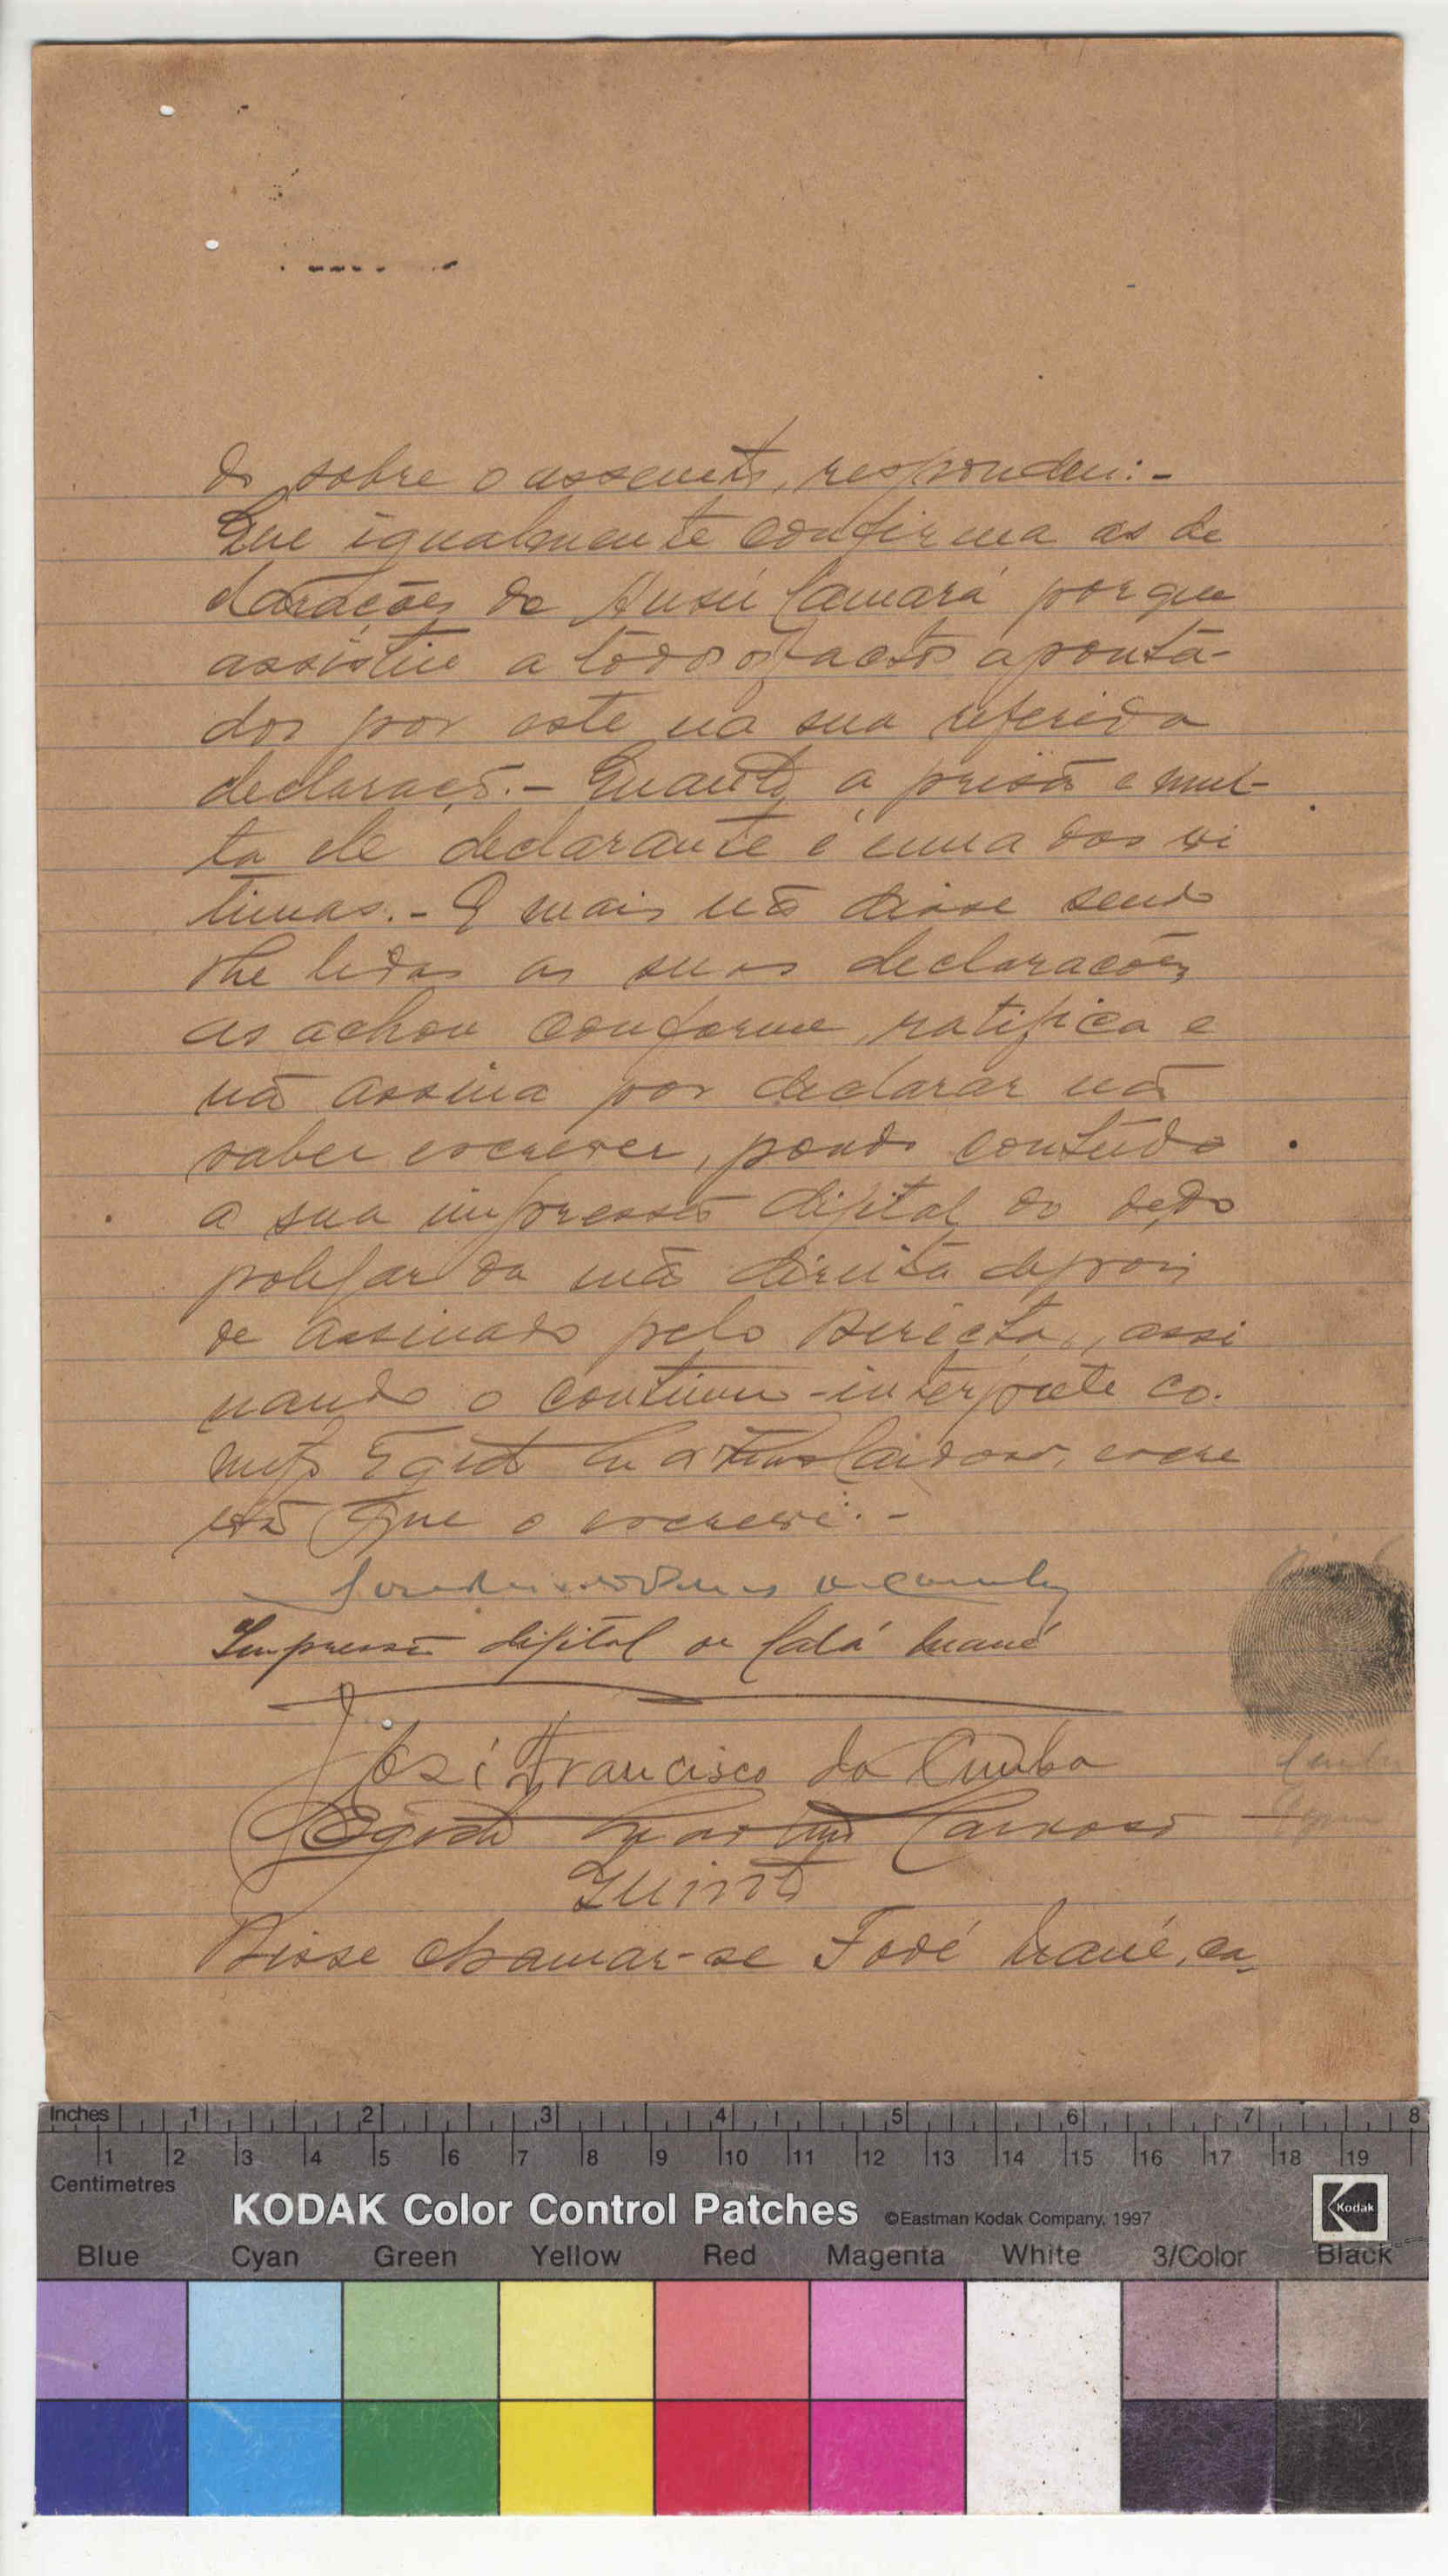 do sobre o assunto, respondeu:-
Que igualmente confirma as de
clarações de Ansú Camará porque
assistiu a todos os factos aponta-
dos por este na sua referida
declaração.- Quanto a prisão e mul-
ta ele declarante é uma das vi
timas.- E mais não disse sendo
lhe lidas as suas declarações
as achou conforme, ratifica e
não assina por declarar não
saber escrever, pondo contudo
a sua impressão digital do dedo
polegar da mão direita depois
de assinado pelo Director, assi
nando o continuo-interprete co-
migo Egidio Martins Cardoso, escri
vão que o escrevi.-
Impressão digital de Calá Mané
José Francisco da Cunha
Egidio Martins Cardoso
Quinto
Disse chamar-se Fodé Mané, ca-
Inches 1 2 3 4 5 6 7 8
1 2 3 4 5 6 7 8 9 10 11 12 13 14 15 16 17 18 19
Centimetres
KODAK Color Control Patches ©Eastman Kodak Company, 1997 Kodak
Blue Cyan Green Yellow Red Magenta White 3/Color Black